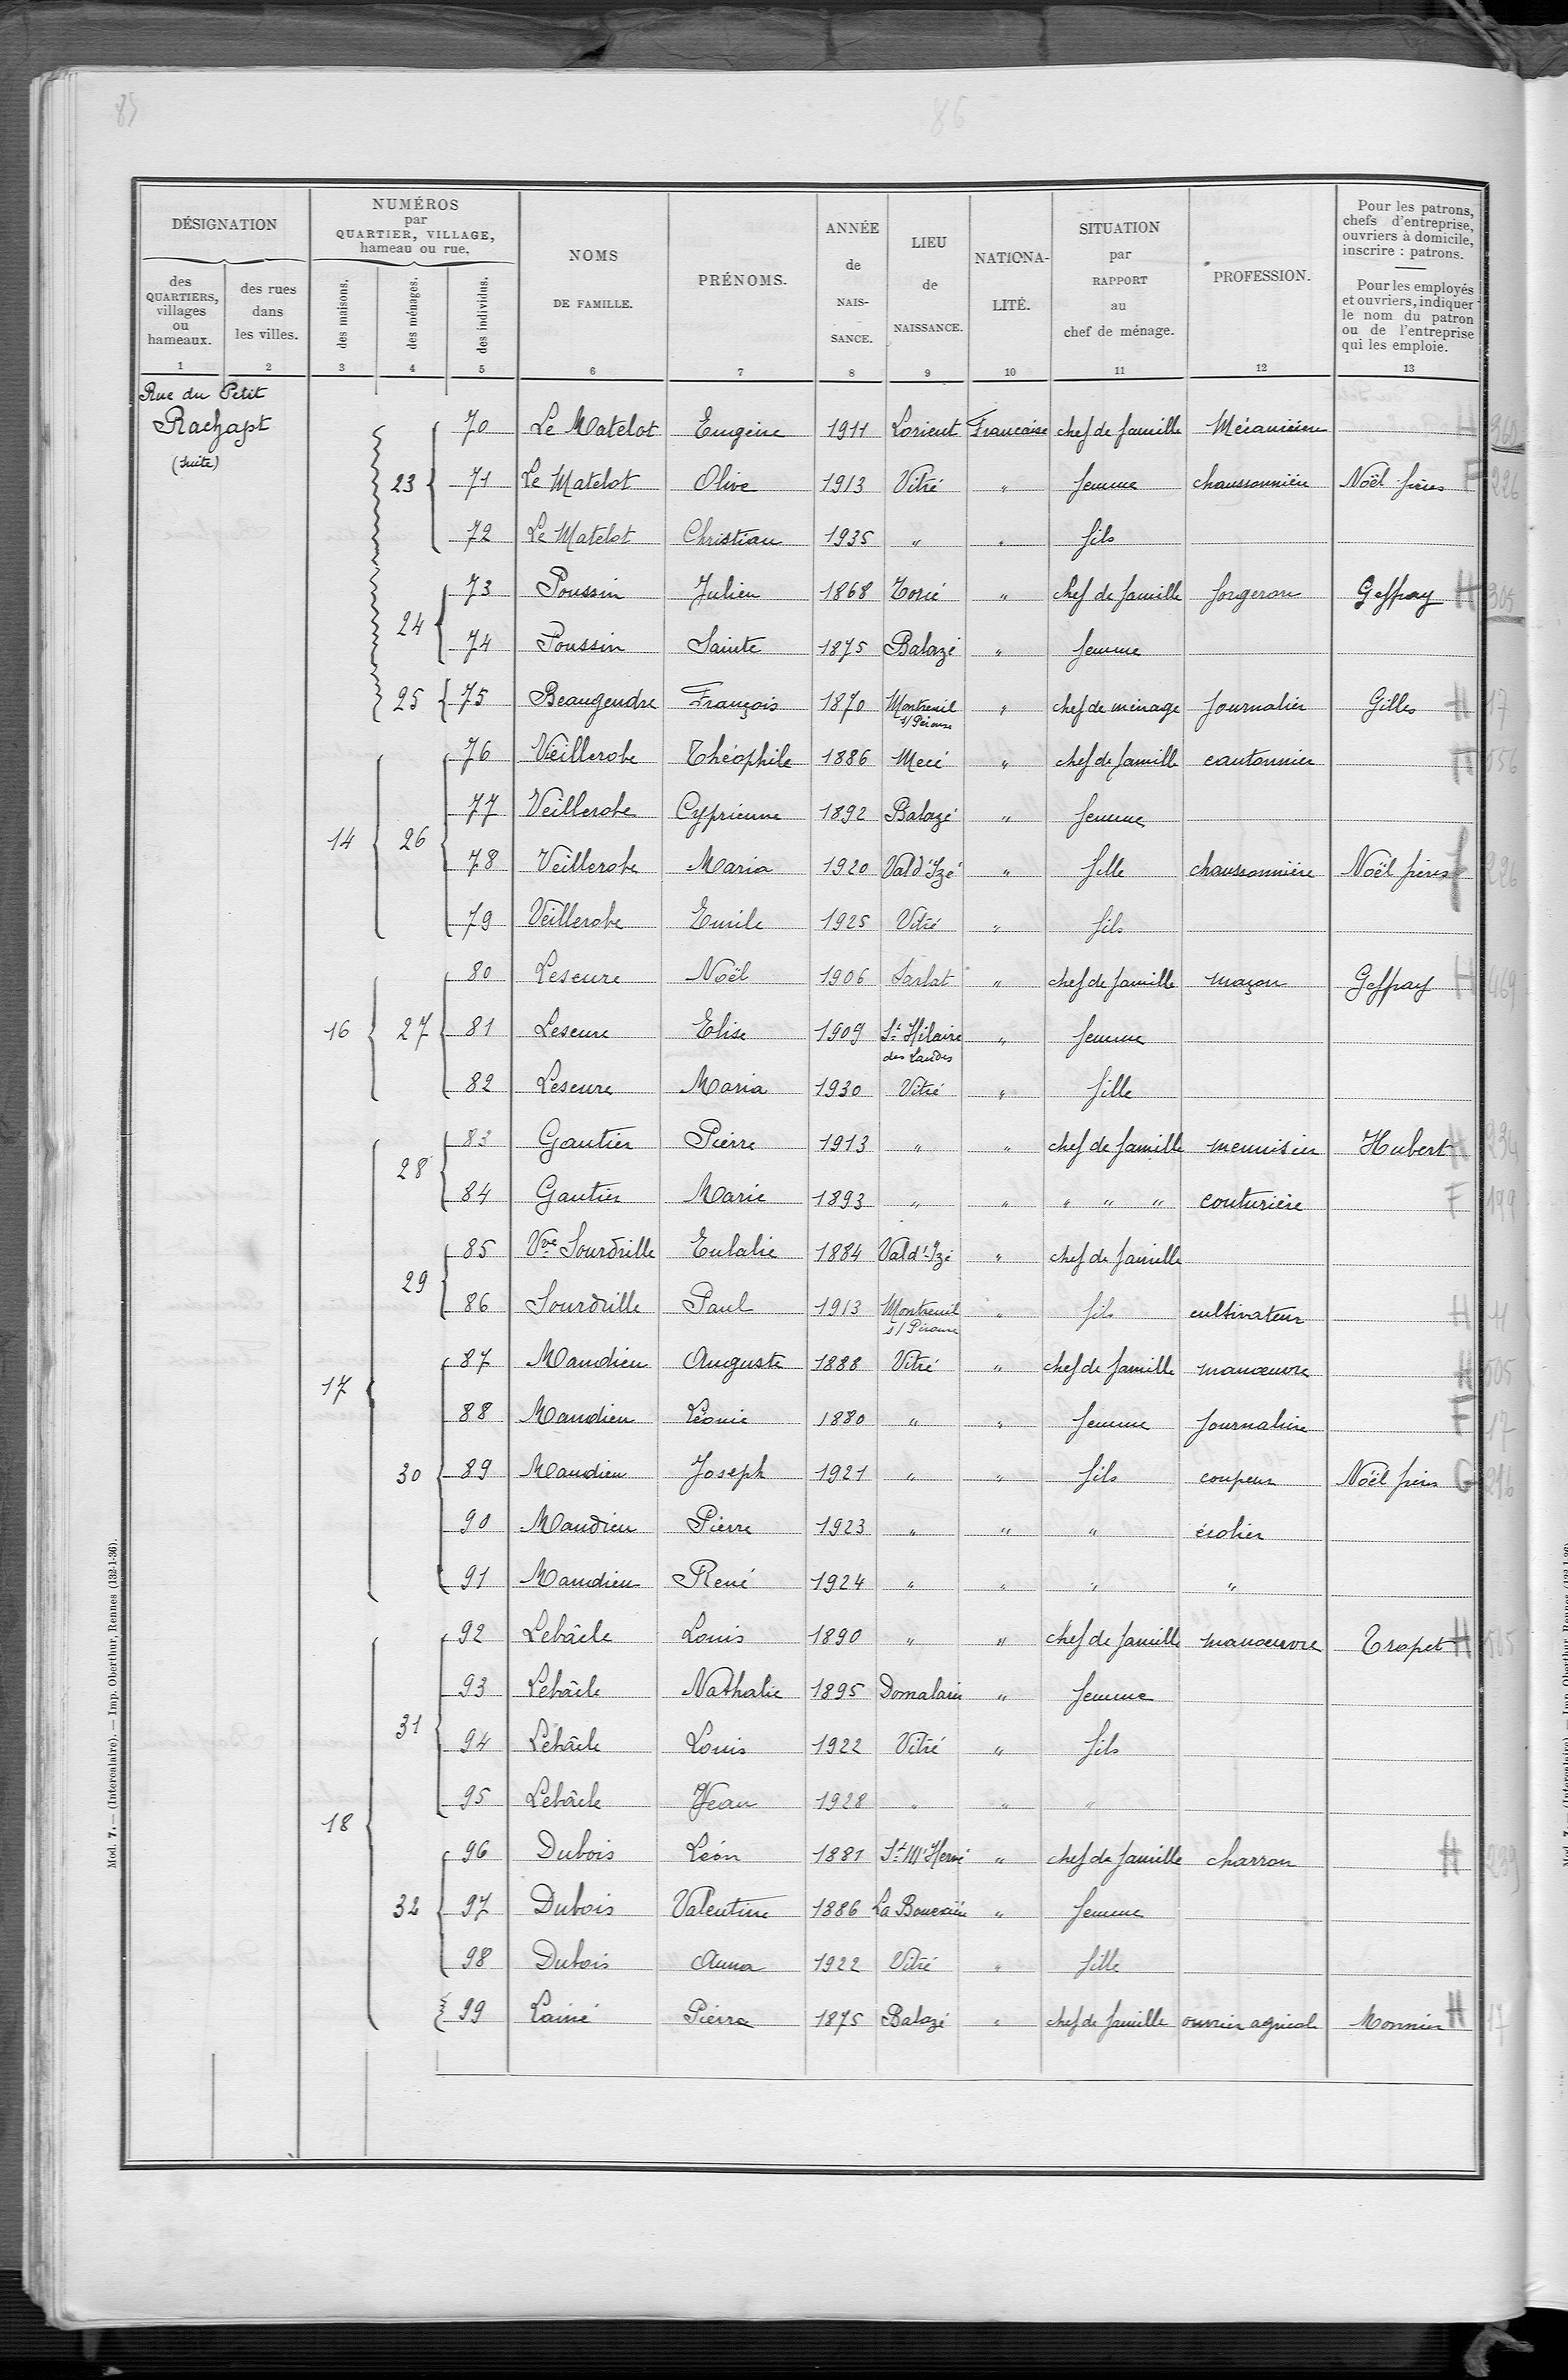 85
86
DÉSIGNATION
NUMÉROS
par
QUARTIER, VILLAGE,
hameau ou rue.
NOMS
DE FAMILLE.
PRÉNOMS.
ANNÉE
de
NAIS-
SANCE.
LIEU
de
NAISSANCE.
NATIONA-
LITÉ.
SITUATION
par
RAPPORT
au
chef de ménage.
PROFESSION.
Pour les patrons,
chefs d'entreprise,
ouvriers à domicile,
inscrire : patrons.
Pour les employés
et ouvriers, indiquer
le nom du patron
ou de l'entreprise
qui les emploie.
des
QUARTIERS,
villages
ou
hameaux.
des rues
dans
les villes.
des maisons.
des ménages.
des individus.
1 2 3 4 5 6 7 8 9 10 11 12 13
Rue du Petit
Rachapt
(suite)
70 Le Matelot Eugène 1911 Lorient Francaise chef de famille Mécanicien H 365
23 71 Le Matelot Olive 1913 Vitré " femme chaussonnière Noël frères F 226
72 Le Matelot Christian 1935 " " fils
73 Poussin Julien 1868 Torcé " chef de famille forgeron Geffray H 305
24
74 Poussin Sainte 1875 Balazé " femme
25 75 Beaugendre François 1870 Montreuil s/Pérouse " chef de ménage journalier Gilles H 17
76 Vieillerobe Théophile 1886 Mecé " chef de famille cantonnier H 556
77 Veillerobe Cyprienne 1892 Balazé " femme
14 26
78 Veillerobe Maria 1920 Val d'Izé " fille chaussonnière Noël frères F 226
79 Veillerobe Emile 1925 Vitré " fils
80 Leseure Noël 1906 Sarlat " chef de famille maçon Geffray H 469
16 27 81 Leseure Elise 1909 St Hilaire des Landes " femme
82 Leseure Maria 1930 Vitré " fille
83 Gautier Pierre 1913 " " chef de famille menuisier Hubert H 234
28
84 Gautier Marie 1893 " " " " " couturière F 199
85 Vve Sourdrille Eulalie 1884 Val d'Izé " chef de famille
29
86 Sourdrille Paul 1913 Montreuil s/Pérouse " fils cultivateur H 11
87 Maudieu Auguste 1888 Vitré " chef de famille manœuvre H 505
17
88 Maudieu Léonie 1880 " " femme journalière F 17
30 89 Maudieu Joseph 1921 " " fils coupeur Noël frères G 216
90 Maudieu Pierre 1923 " " " écolier
91 Maudieu René 1924 " " " "
92 Lebâcle Louis 1890 " " chef de famille manœuvre Tropet H 505
93 Lebâcle Nathalie 1895 Domalain " femme
31
94 Lebâcle Louis 1922 Vitré " fils
95 Lebâcle Jean 1928 " " "
18
96 Dubois Léon 1881 St M' Hervé " chef de famille charron H 239
32 97 Dubois Valentine 1886 La Bouëxière " femme
98 Dubois Anna 1922 Vitré " fille
99 Lainé Pierre 1875 Balazé " chef de famille ouvrier agricole Monnier H 17
Mod. 7. — (Intercalaire). — Imp. Oberthur, Rennes (132-1-36).